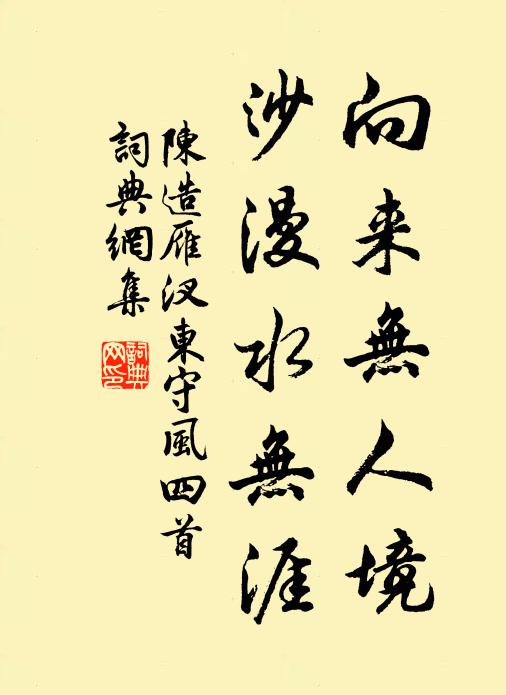 向来無人境
沙漫水無涯
陳造雁汊東守風四首
詞典網集
詞典网印